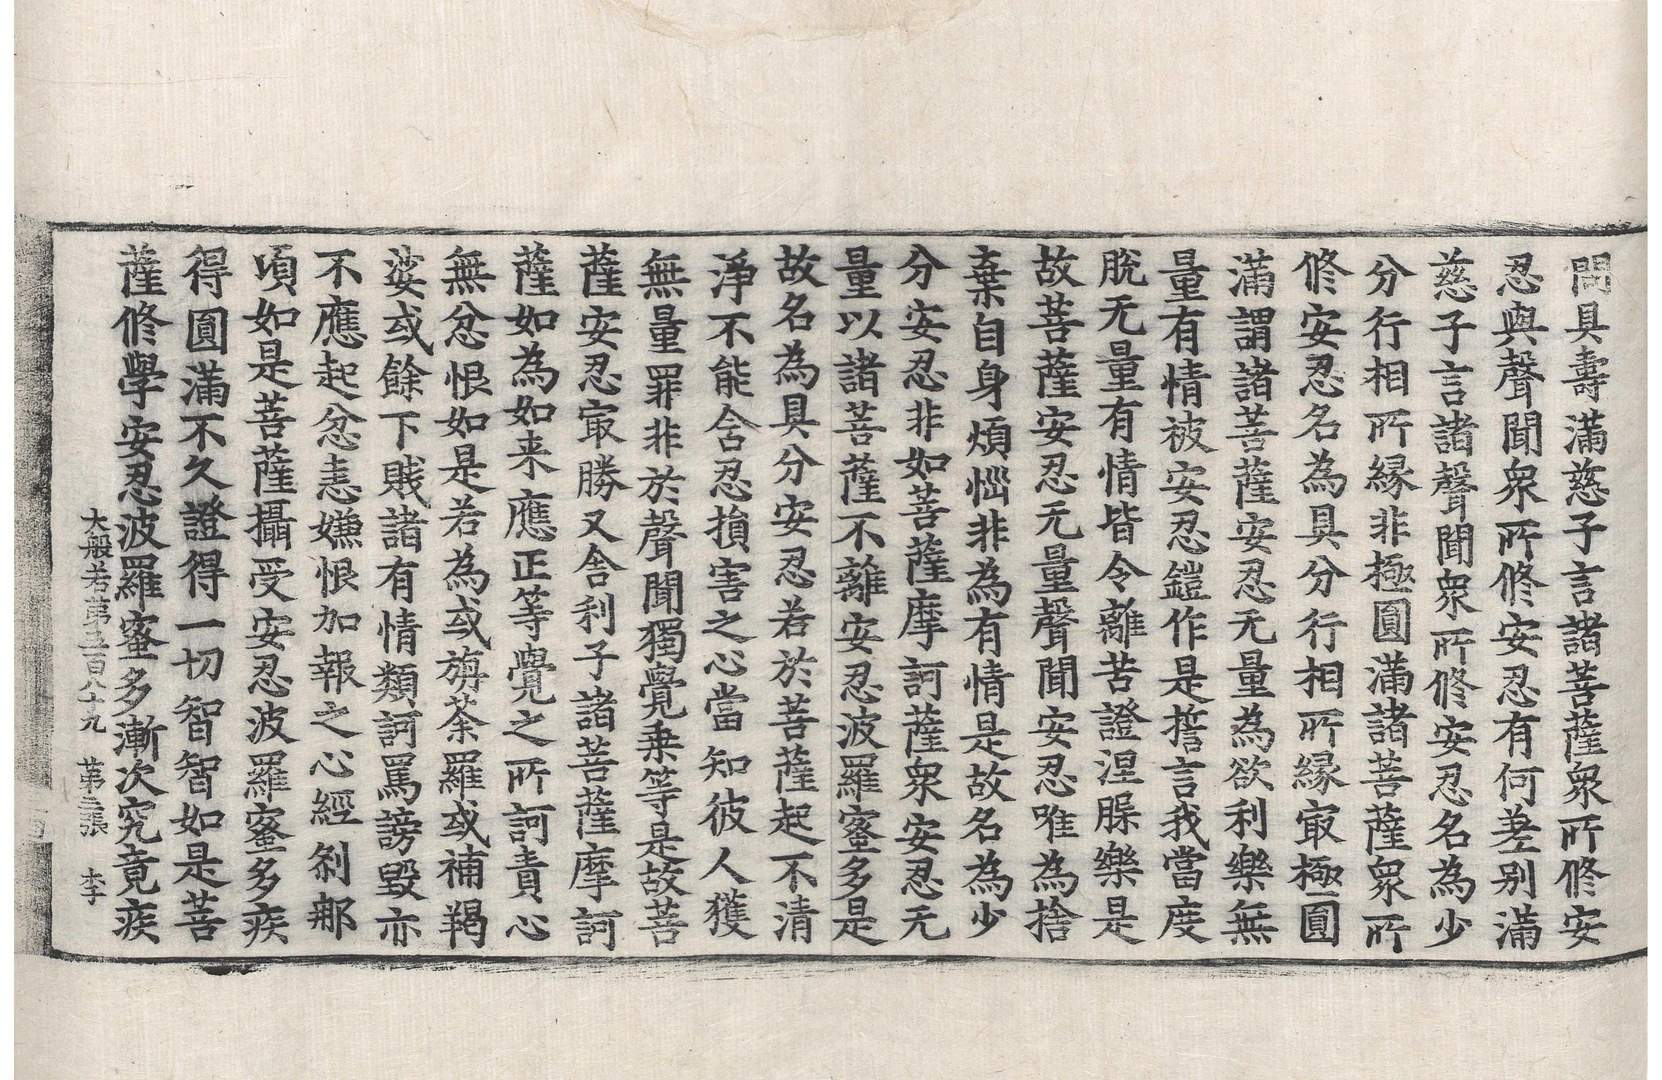 問具壽滿慈子言諸菩薩衆所修安
忍與聲聞衆所修安忍有何差别滿
慈子言諸聲聞衆所修安忍名為少
分行相所縁非極圓滿諸菩薩衆所
修安忍名為具分行相所縁㝡極圓
滿謂諸菩薩安忍无量為欲利樂無
量有情被安忍鎧作是誓言我當度
脫无量有情皆令離苦證涅槃樂是
故菩薩安忍无量聲聞安忍唯為捨
棄自身煩惱非為有情是故名為少
分安忍非如菩薩摩訶薩衆安忍无
量以諸菩薩不離安忍波羅蜜多是
故名為具分安忍若於菩薩起不清
淨不能含忍損害之心當知彼人獲
無量罪非於聲聞獨覺乗等是故菩
薩安忍㝡勝又舍利子諸菩薩摩訶
薩如為如来應正等覺之所訶責心
無忿恨如是若為或旃荼羅或補羯
娑或餘下賎諸有情類訶罵謗毀亦
不應起忿恚嫌恨加報之心經剎那
頃如是菩薩攝受安忍波羅蜜多疾
得圓滿不久證得一切智智如是菩
薩修學安忍波羅蜜多漸次究竟疾
大般若第五百八十九　第二張　李